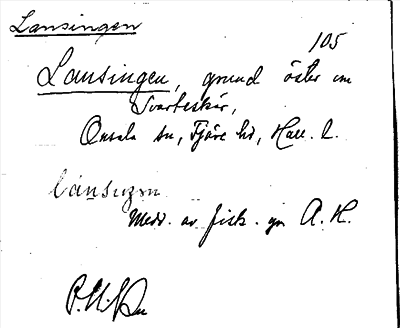 Lansingen
105
Lansingen, grund öster om
Svarteskär,
Onsala sn, Fjäre hd, Hall. l.
lánsıŋən
Medd. av fisk. gm A. K.